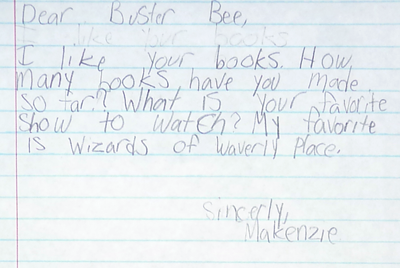 Dear Buster Bee,
I like your books
I like your books. How
many books have you made
so far? What is your favorite
Show to watch? My favorite
is Wizards of Waverly Place.
Sincerly,
Makenzie